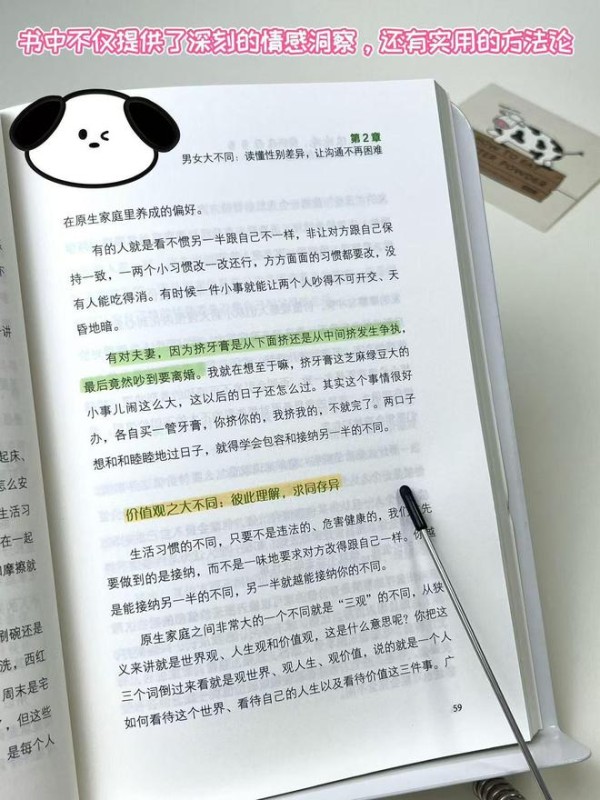 书中不仅提供了深刻的情感洞察，还有实用的方法论
第2章
男女大不同：读懂性别差异，让沟通不再困难
在原生家庭里养成的偏好。
有的人就是看不惯另一半跟自己不一样，非让对方跟自己保
持一致，一两个小习惯改一改还行，方方面面的习惯都要改，没
有人能吃得消。有时候一件小事就能让两个人吵得不可开交、天
昏地暗。
有对夫妻，因为挤牙膏是从下面挤还是从中间挤发生争执，
最后竟然吵到要离婚。我就在想至于嘛，挤牙膏这芝麻绿豆大的
小事儿闹这么大，这以后的日子还怎么过。其实这个事情很好
办，各自买一管牙膏，你挤你的，我挤我的，不就完了。两口子
想和和睦睦地过日子，就得学会包容和接纳另一半的不同。
价值观之大不同：彼此理解，求同存异
生活习惯的不同，只要不是违法的、危害健康的，我们先
要做到的是接纳，而不是一味地要求对方改得跟自己一样。你越
是能接纳另一半的不同，另一半就越能接纳你的不同。
原生家庭之间非常大的一个不同就是“三观”的不同，从狭
义来讲就是世界观、人生观和价值观，这是什么意思呢？你把这
三个词倒过来看就是观世界、观人生、观价值，说的就是一个人
如何看待这个世界、看待自己的人生以及看待价值这三件事。广
59
讲
起床、
怎么安
生活习
在一起
和摩擦就
刷碗还是
洗，西红
周末是宅
但这些
是每个人